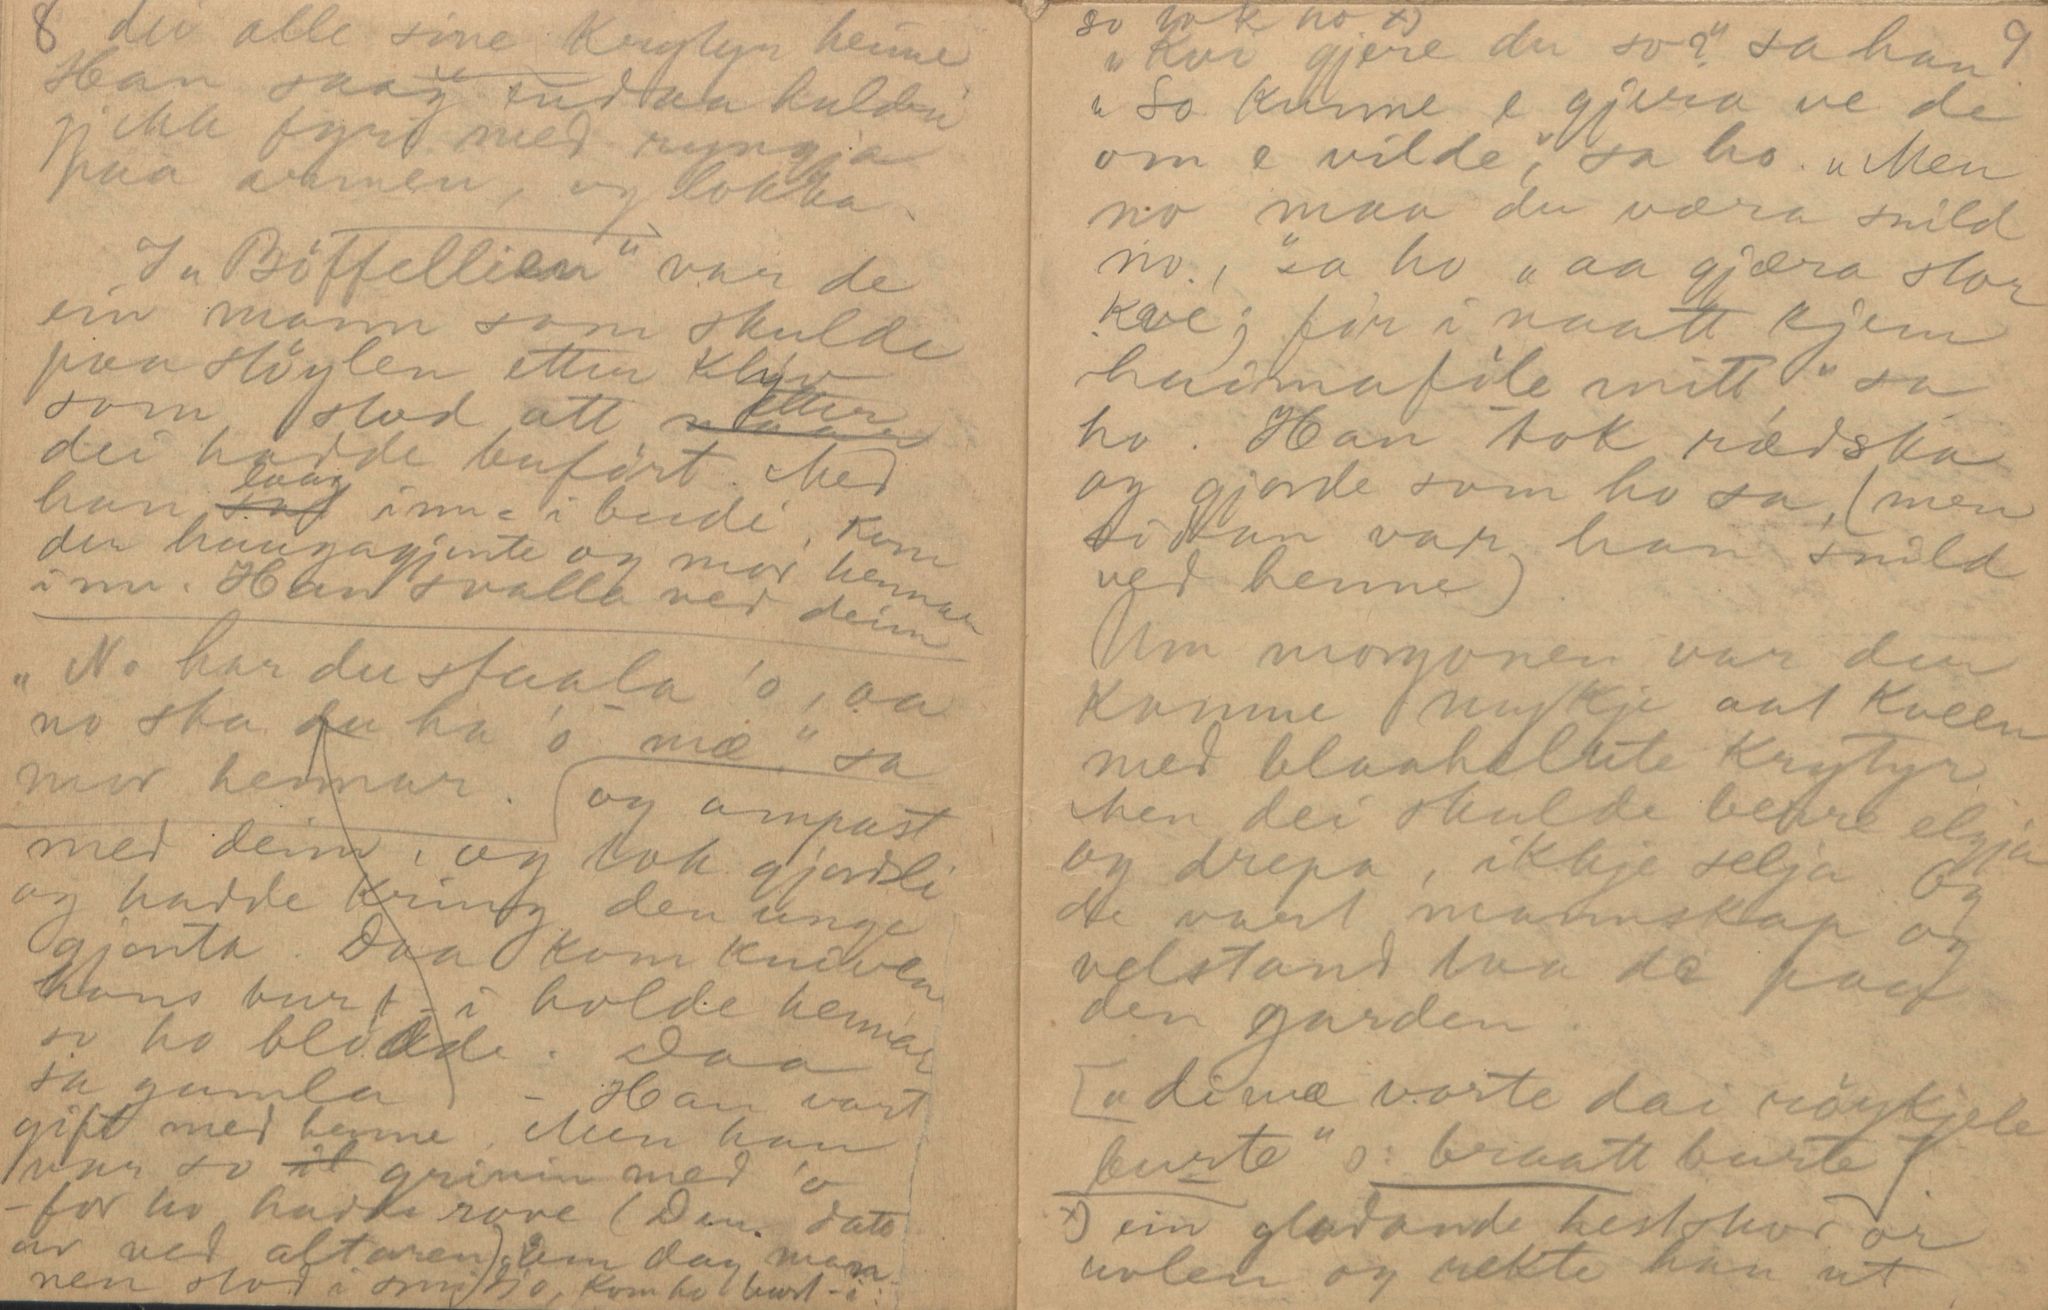 8 dei alle sine Krytyr heime
Han saag endaa huldri
gjekk fyri med ryngja
paa armen, og lokka.
I „Böffellien" var de
ein mann som skulde
paa stöylen etter Klyv
som stod att etter
dei hadde buført. Med
han laag inne i budi, kom
der haugagjente og mor hennar
inn. Han svalla ved deim
„No har du staala 'o, aa
no ska du ha 'o mæ" sa
mor hennar. og ampast
med deim, og tok gjordli
og hadde kring den unge
gjenta. Daa kom kniven
hans burt-i holde hennar
so ho blødde. Daa
sa gamla – Han vart
gift med henne. Men han
var so grinin med 'o
– for ho hadde rove (Den datt
av ved altaren). Ein dag mann
nen stod i smidjo, kom ho burt-i:
so tok ho x) 9
„Kvi gjere du so?" sa han
„So kunne e gjera ve de
om e vilde", sa ho. „Men
no maa du være snild
no," sa ho „aa gjæra stor
kvé; før i naatt kjem
heimaføle mitt" sa
ho. Han tok rædska
og gjorde som ho sa, (men
sidan var han snild
ved henne)
Um morgonen var der
komme mykje aat kveen
med blaahelute Krytyr.
Men dei skulde berre elgja
og drepa, ikkje selja. Og
de vart mannskap og
velstand taa de paa
den garden.
[„di mæ vorte dai röykjele
burte" ɔ: braatt burte]
x) ein gladande hestskor or
uvlen og rekte han ut